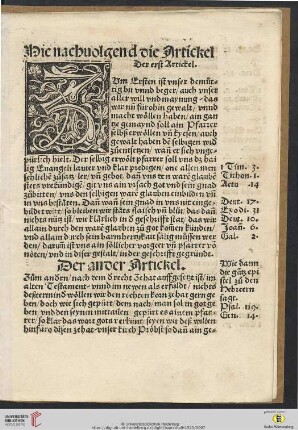 Hie nachuolgend die Artickel
Der erst Artickel.
Zum Ersten ist vnser demü-
tig bit vnnd beger, auch vnser
aller will vnd maynung, das
wir nü fürohin gewalt, vnnd
macht wöllen haben, ain gan
tze gemaynd soll ain Pfarrer
selbs erwölen vñ kyesen, auch
gewalt haben den selbigen wid
zuentsetzen, wañ er sich vnge-
pürlich hielt. Der selbig erwölt pfarrer soll vns dz hai
lig Euangeli lauter vnd klar predigen, one allen men
schlichē zusatz, leer, vñ gebot, dañ vns den ware glaubē
stetz verkündigē, gibt vns ain vrsach got vnd sein gnad
zubittē, vns den selbigen waren glauben einbilden vñ
in vns bestäten, Dañ wañ sein gnad in vns nit einge-
bildet wirt, so bleiben wir stätz fleisch vñ blut, das dañ
nichts nutz ist, wie klärlich in d geschrifft stat, das wir
allain durch den ware glauben zu got komen künden,
vnd allain durch sein barmhertzikait sälig müssen wer
den, darum ist vns ain söllicher vorgeer vñ pfarrer vō
nöten, vnd in diser gestalt, in der geschrifft gegründt.
1 Tim. 3.
Tithon. 1.
Actu 14
Deut. 17.
Exodi. 31
Deut. 10.
Joañ. 6.
Gal. 2
Der ander Artickel.
Zum andern, nach dem d recht Zehat auffgesetzt ist, im
alten Testament, vnnd im newen als erfuldt, nichts
destermind wöllen wir den rechten korn zehat gern ge
ben, doch wie sich gepürt, dem nach man sol in got ge
ben, vnd den seynen mittailen, gepürt es ainem pfar-
rer, so klar das wort gots verkünt, seyen wir des willen
hinfüro disen zehat, vnser kirch Pröbst, so dañ ain ge-
Wie dann
die gātz epi
stel zu den
Hebreern
sagt.
Psal. 119.
Gen. 14.
© Universitätsbibliothek Heidelberg